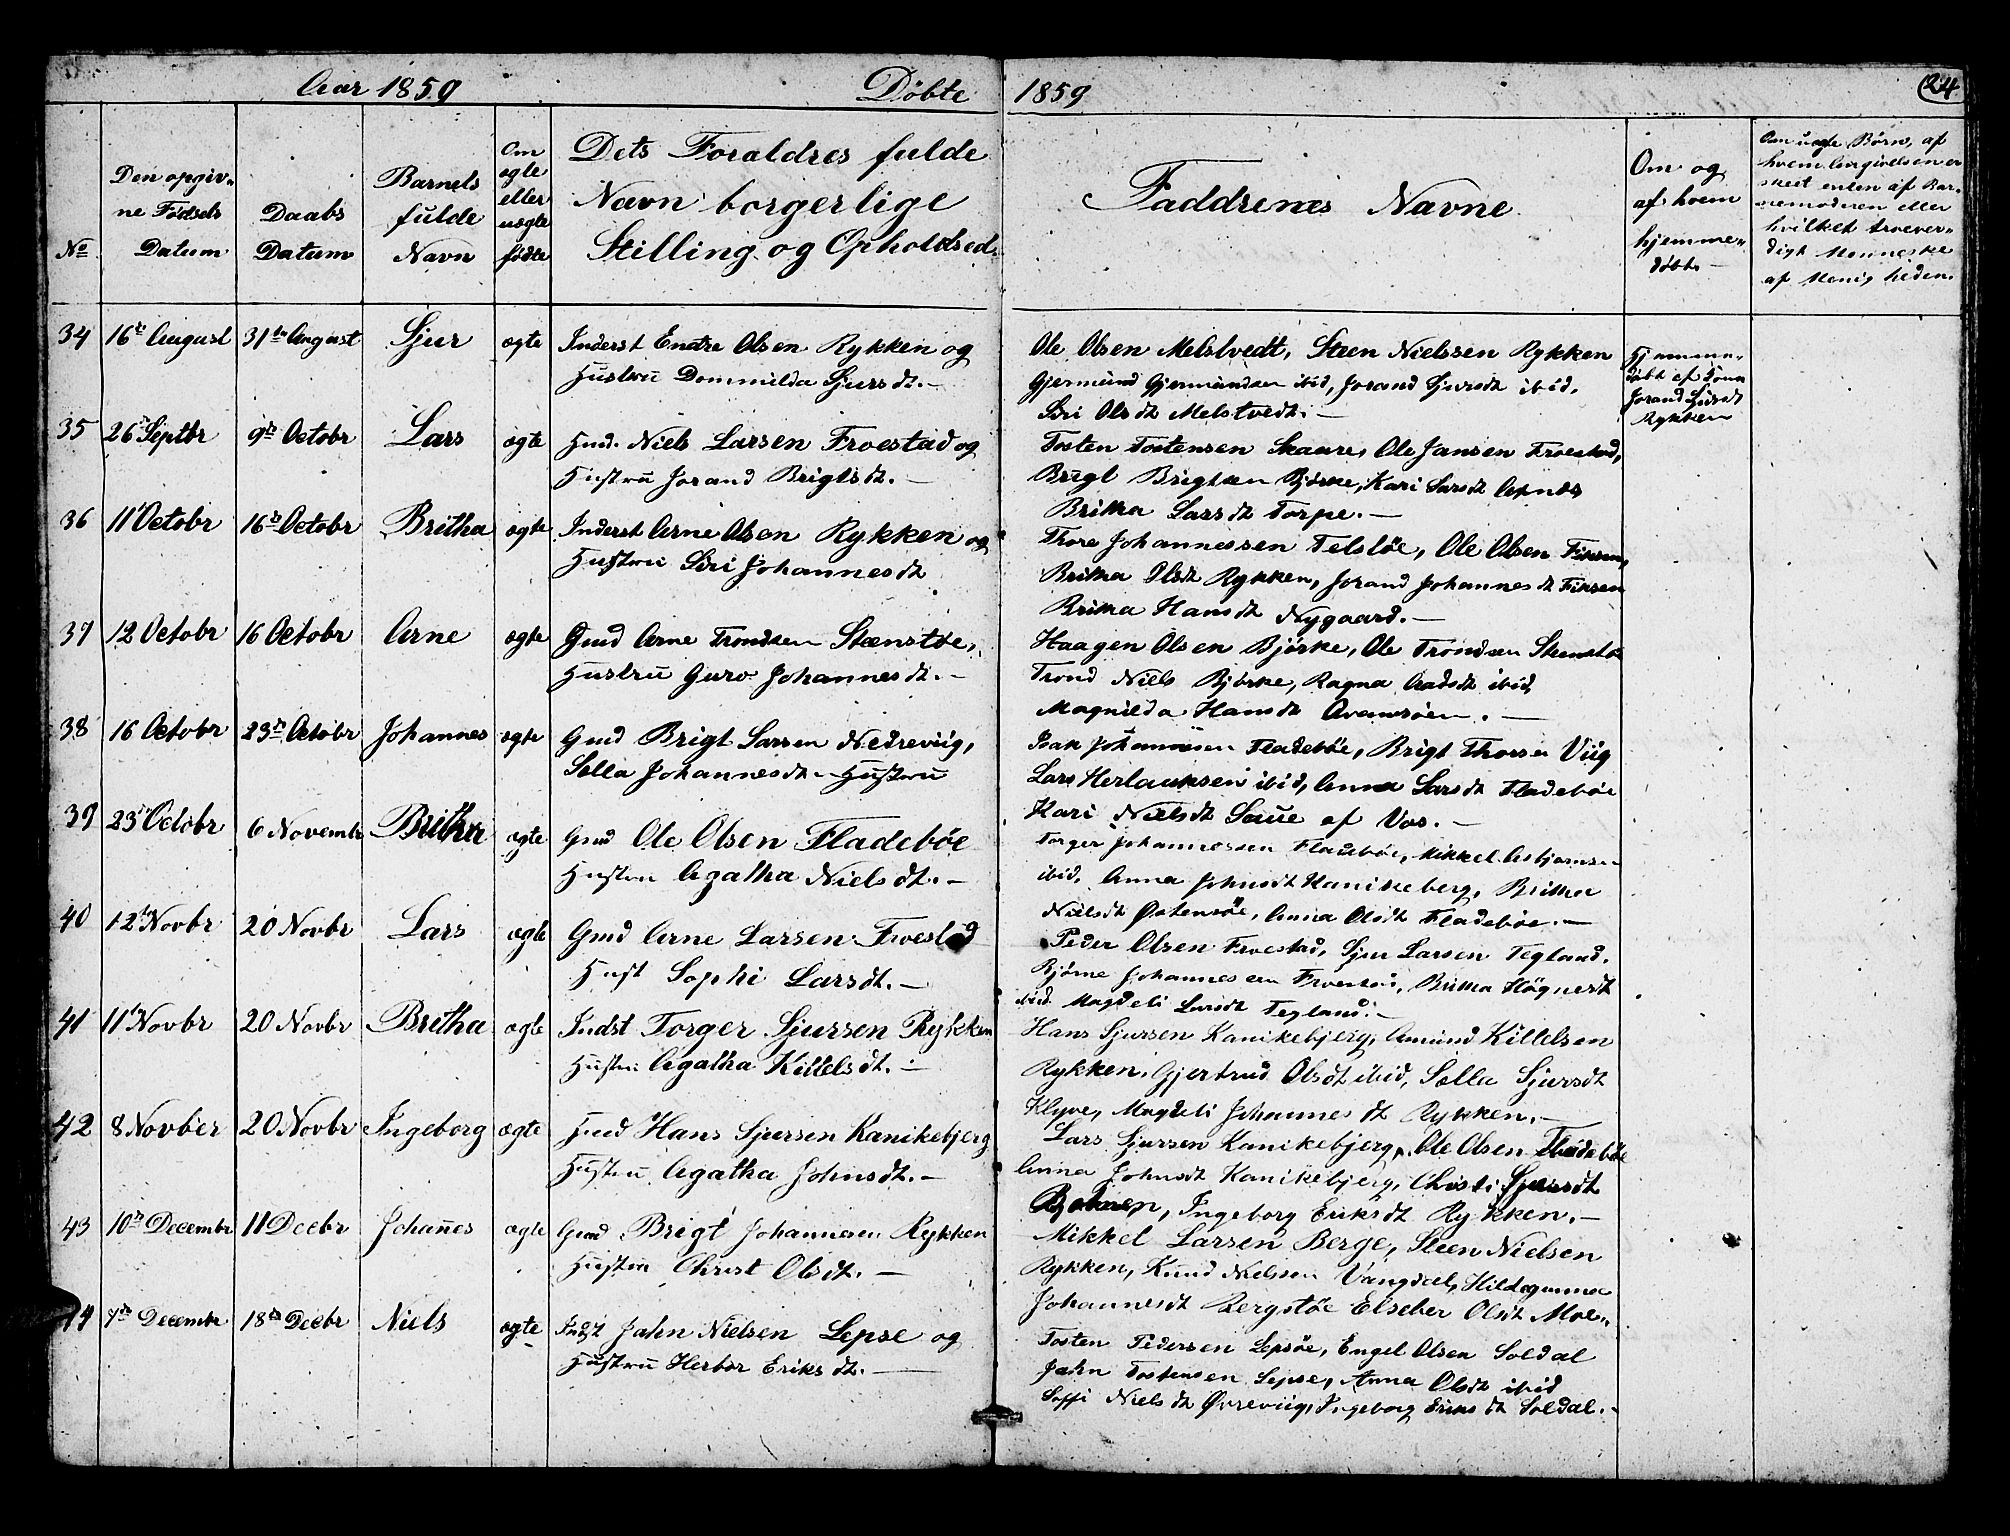 Aar 1859 Døbte 1859 24
No
Den opgiv-
ne Fødsels
Datum
Daabs
Datum
Barnets
fulde
Navn
Om
ægte
eller
uægte
fødte
Dets Foraldres fulde
Navn borgerlige
Stilling og Opholdsed.
Faddrenes Navne
Om og
af hvem
hjemme-
døbt
Om uægte Børn, af
hvem Angivelsen er
skeet enten af Bar-
nemoderen eller
hvilket troever-
digt Menneske
af Menigheden.
34 16de August 31te August Sjur ægte Inderst Endre Olsen Rykken og
Hustru Dommilda Sjursdt. —
Ole Olsen Melstvedt, Steen Nielssen Rykken
Gjermund Gjermundsen ibid, Jorand Sjursdt ibid.
Siri Olsdt Melstvedt. —
Hjemme-
døbt af
Jorand Sjursdt
Rykken
35 26de Septbr 9de Octobr Lars ægte Gmd. Niels Larsen Froestad og
Hustru Jorand Brigtsdt. —
Tosten Tostensen Skaare, Ole Jansen Froestad,
Brigt Brigtsen Bjørke, Kari Larsdt Axnes
Britha Larsdt Torpe. —
36 11 Octobr 16de Octobr Britha ægte Inderst Arne Olsen Rykken og
Hustru Siri Johannesdt
Thore Johannessen Telsløe, Ole Olsen Fixsen,
Britha Olsdt Rykken, Jorand Johannesdt Fixsen
Britha Hansdt Nygaard. —
37 12 Octobr 16 Octobr Arne ægte Gmd Arne Trondsen Stænstøe,
Hustru Guro Johannesdt. —
Haagen Olsen Bjørke, Ole Trondsen Steenstøe
Trond Niels Bjørke, Ragna Aadsdt ibid
Magnilda Hansdt
38 16 Octobr 23de Octobr Johannes ægte Gmd Brigt Larsen Nedreviig,
Sølla Johannesdt. Hustru
Isak Johannesen Fladebøe, Brigt Thorsen Viig
Lars Herlauksen ibid, Anna Larsdt Fladebøe
Kari Nielsdt Saue af Vos. —
39 23 Octobr 6 Novembr Britha ægte Gmd Ole Olsen Fladebøe
Hustru Agatha Nielsdt. —
Torger Johannessen Fladebøe, Mikkel Asbjørnsen
ibid, Anna Johnsdt Kanikeberg, Britha
Nielsdt Østensøe, Anna Olsdt Fladebøe. —
40 12 Novbr 20 Novbr Lars ægte Gmd Arne Larsen Froestad
Hust Sophi Larsdt. —
Peder Olsen Froestad, Sjur Larsen Tegland.
Bjørne Johannessen Froestad, Britha Høgnesdt
ibid. Magdeli Larsdt Tegland. —
41 11 Novbr 20 Novbr Britha ægte Indst Torger Sjurssen Rykken
Hustru Agatha Kittelsdt. —
Hans Sjursen Kanikebjerg, Amund Kittelsen
Rykken, Gjertrud Olsdt ibid, Sølla Sjursdt
Klyve, Magdeli Johannesdt Rykken. —
42 8 Novber 20 Novbr Ingeborg ægte Gmd Hans Sjursen Kanikebjerg
Hustru Agatha Johnsdt. —
Lars Sjursen Kanikebjerg, Ole Olsen Fladebøe
Anna Johnsdt Kanikebjerg, Christi Sjursdt
Ingeborg Eriksdt Rykken. —
43 10de Decembr 11 Decbr Johannes ægte Gmd Brigt Johannesen Rykken
Hustru Christ Olsdt. —
Mikkel Larsen Berge, Steen Nielsen
Rykken, Knud Nielssen Vangdal, Hildegunna
Johannesdt Bergstøe Elseber Olsdt Moe.
44 7de Decembr 18de Decbr Niels ægte Indst Jahn Nielsen Lepse og
Hustru Herbor Eriksdt. —
Tosten Pedersen Lepsøe, Engel Olsen Soldal
Jahn Tostensen Lepse, Anna Olsdt ibid
Soffi Nielsdt Øvreviig, Ingeborg Eriksdt Soldal. —